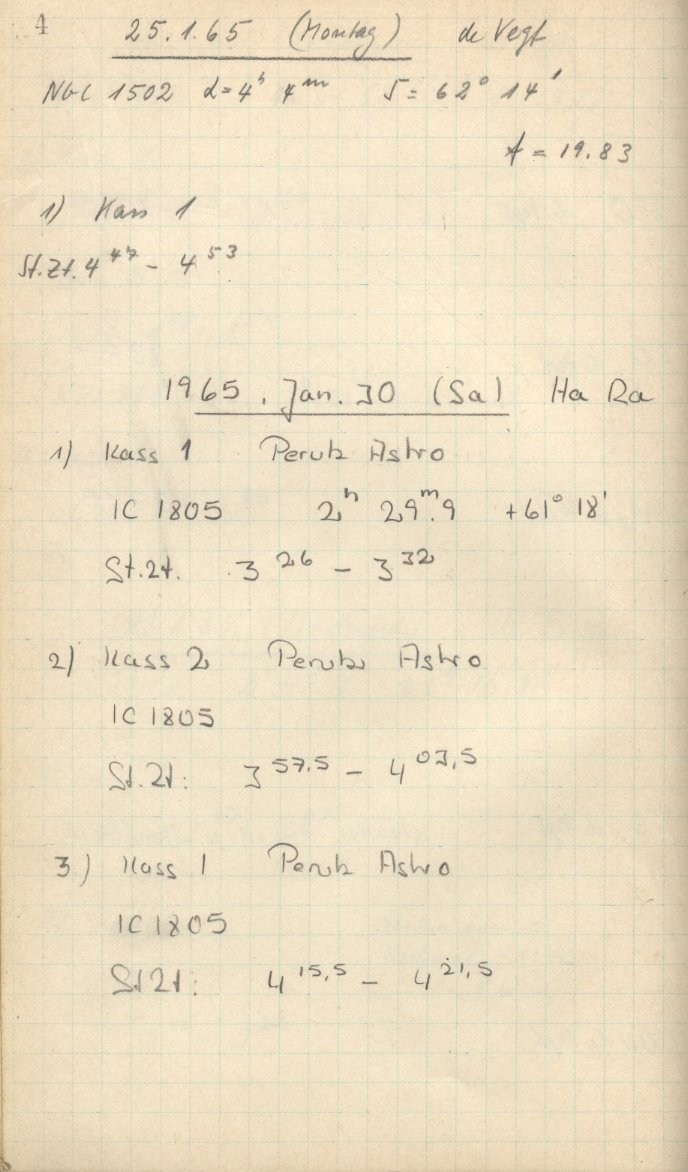 4 25.1.65 (Montag) de Vegt
NGC 1502 α=4ʰ 4ᵐ δ= 62° 14'
A = 19.83
1) Kass 1
St.Zt. 4⁴⁷ - 4⁵³
1965. Jan. 30 (Sa) Ha Ra
1) Kass 1 Perutz Astro
IC 1805 2ʰ 29ᵐ.9 +61° 18'
St.Zt. 3²⁶ - 3³²
2) Kass 2 Perutz Astro
IC 1805
St.Zt: 3⁵⁷,⁵ - 4⁰³,⁵
3) Kass 1 Perutz Astro
IC 1805
St Zt: 4¹⁵,⁵ - 4²¹,⁵